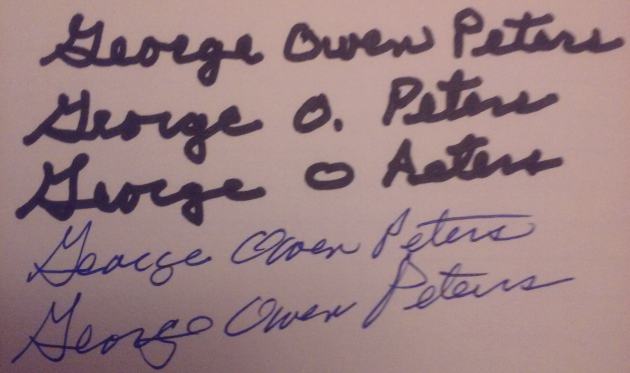 George Owen Peters
George O. Peters
George O Peters
George Owen Peters
George Owen Peters